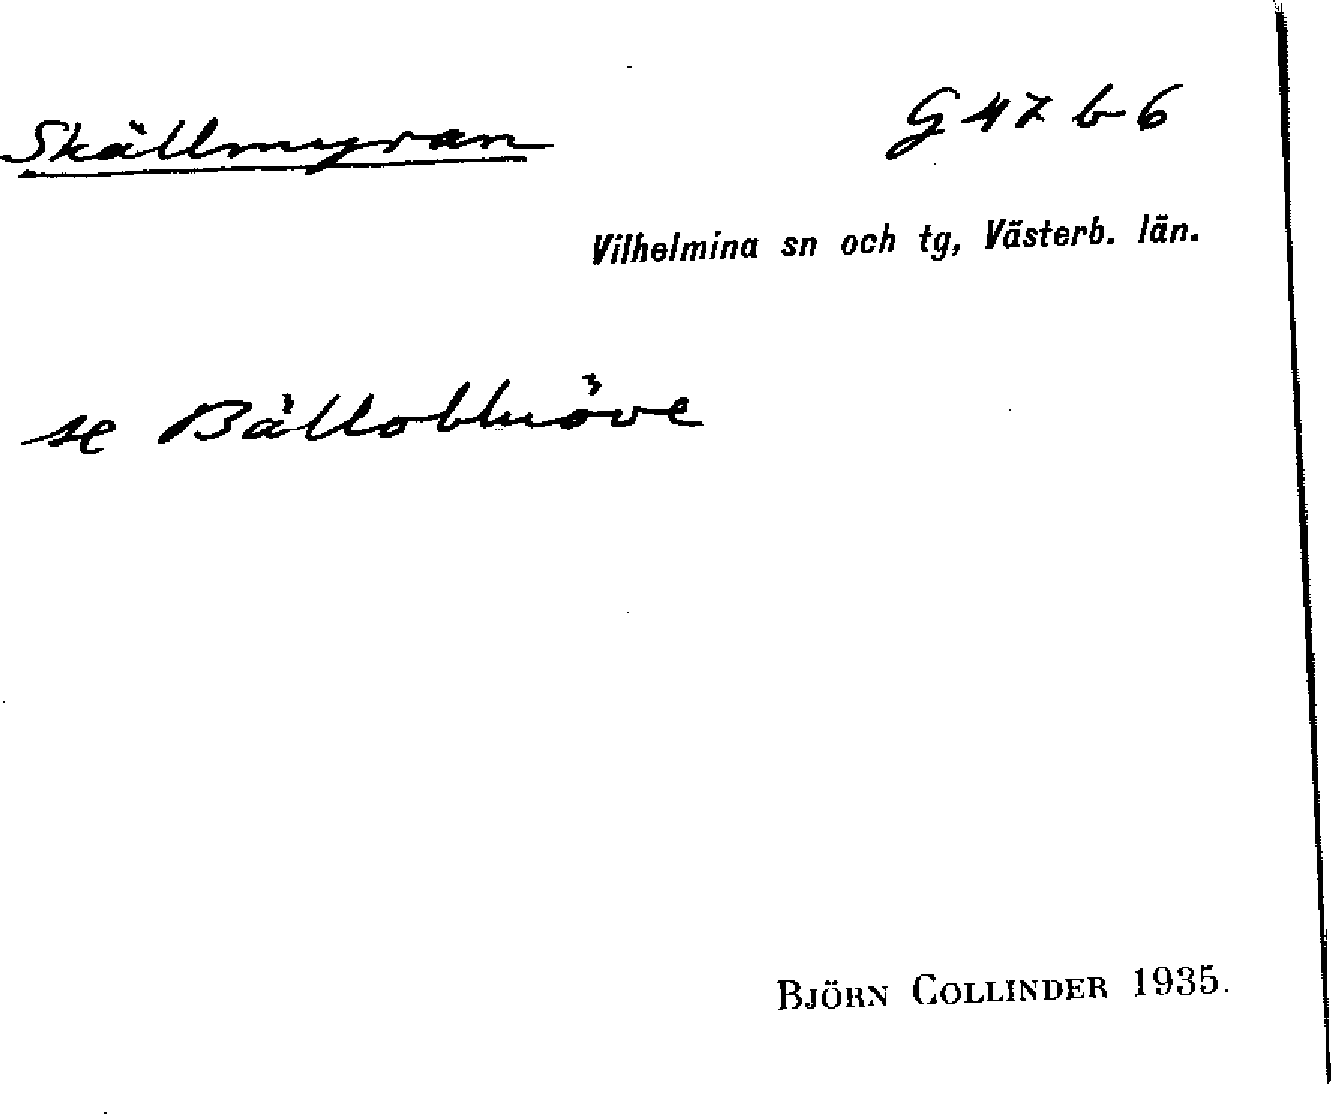 Skällmyran
G 47 b 6
Vilhelmina sn och tg, Västerb. län.
se
BJÖRN COLLINDER 1935.